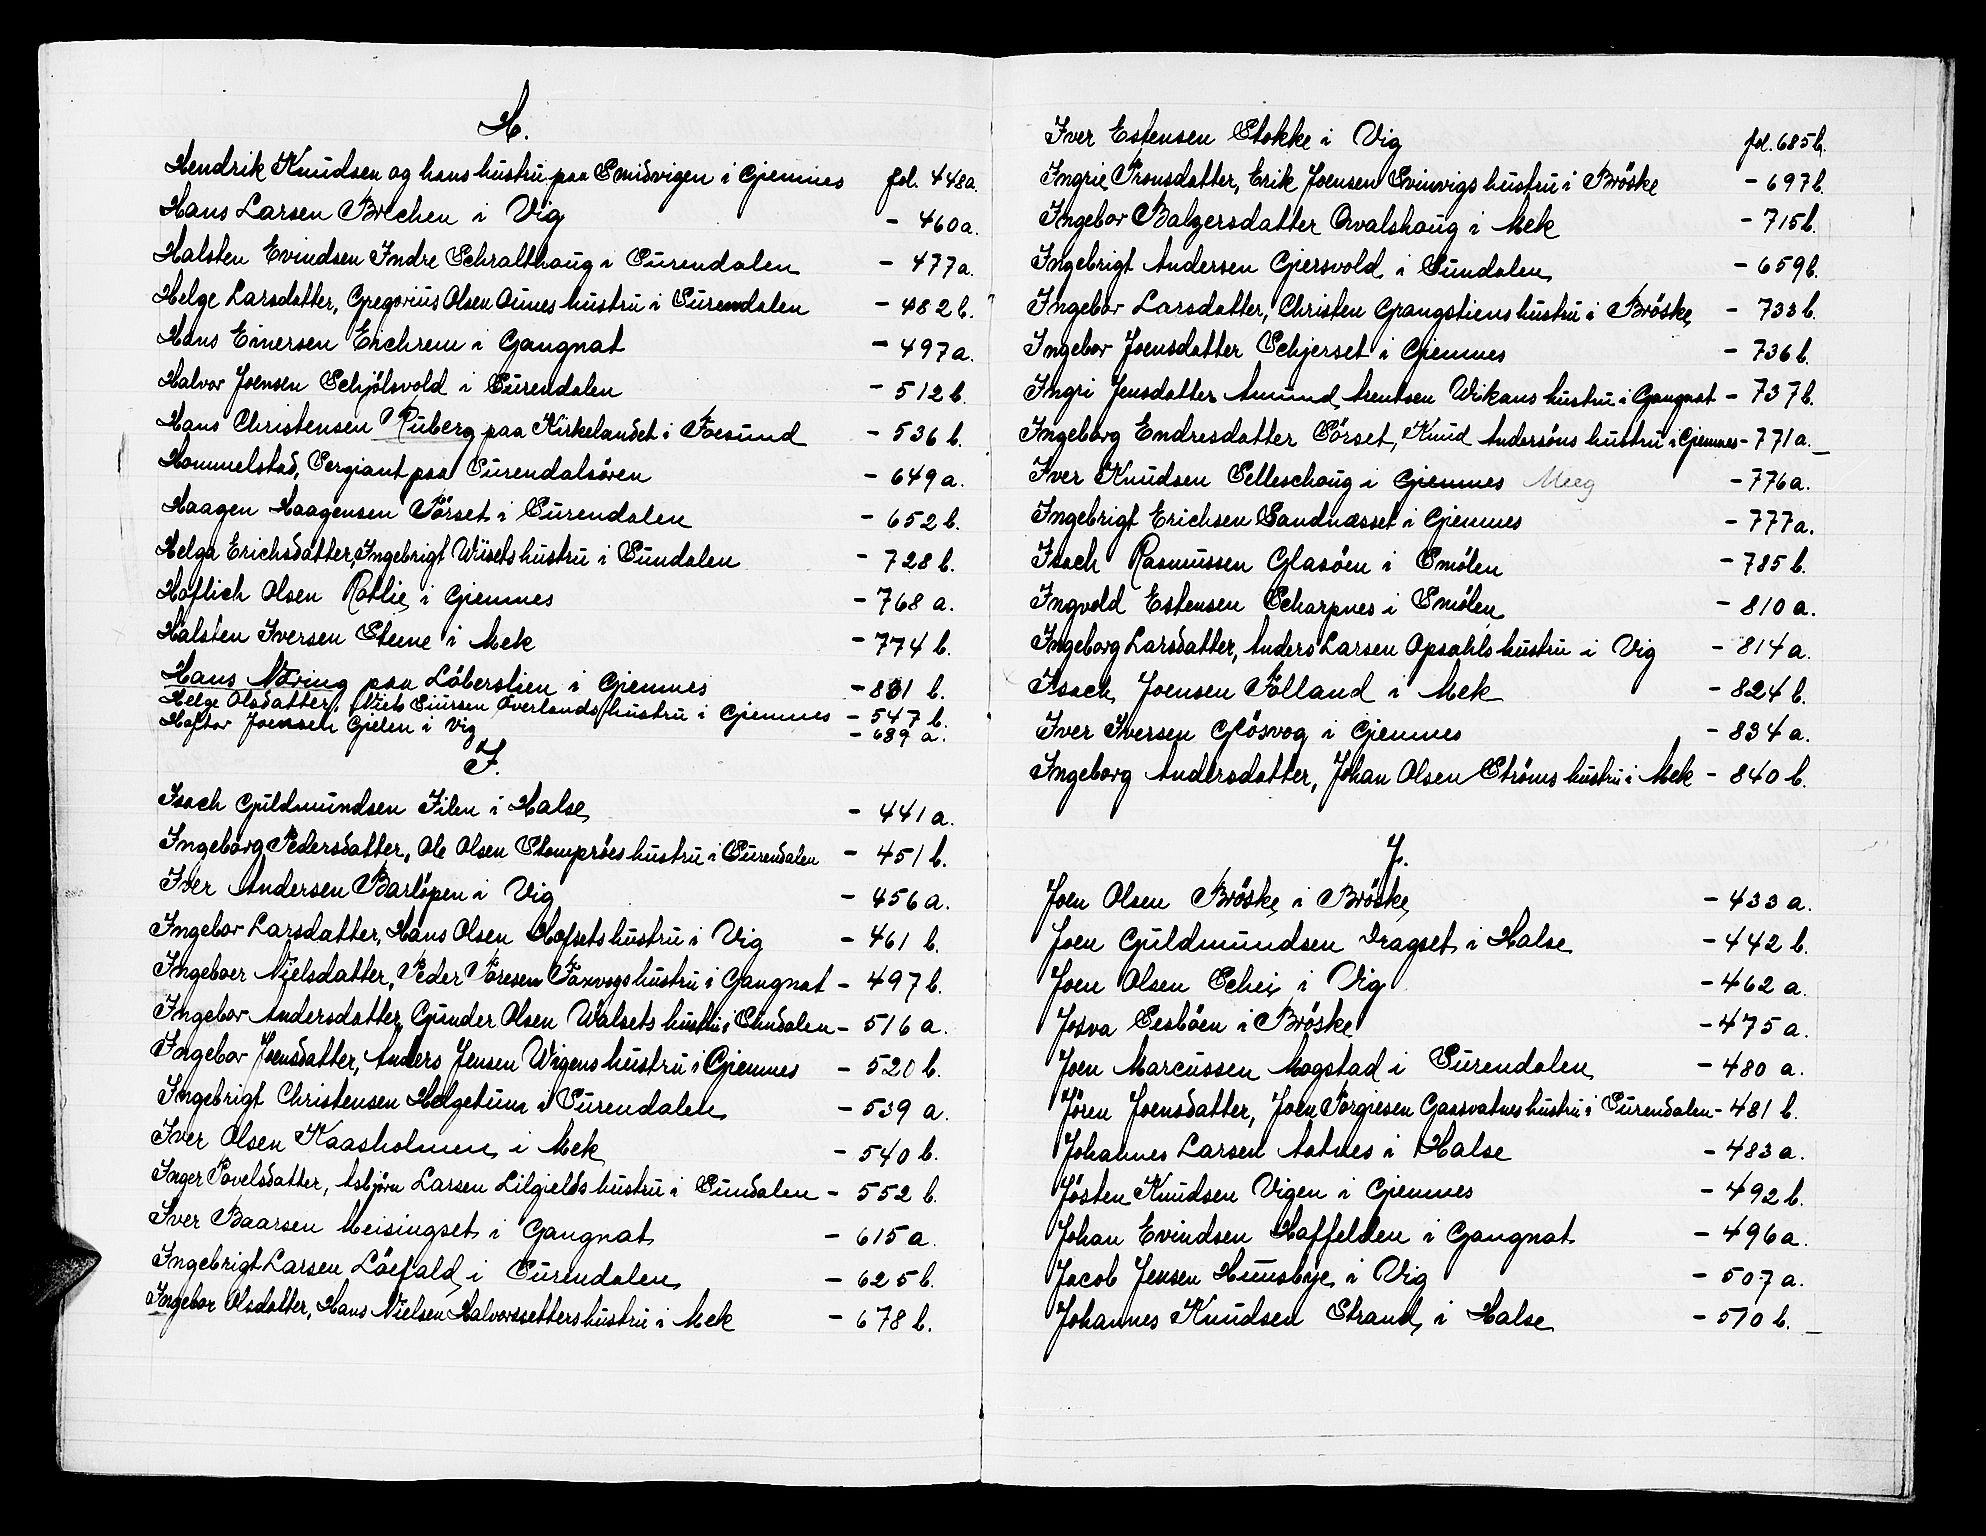 H.
Hendrik Knudsen og hans hustru paa Smidvigen i Gjemnes fol. 448a.
Hans Larsen Brechen i Vig - 460a.
Halsten Evindsen Indre Schralthaug i Surendalen - 477a.
Helge Larsdatter, Gregorius Olsen Aunes hustru i Surendalen - 482b.
Hans Einersen Erchrem i Gangnat - 497a.
Halvor Joensen Schjölsvold i Surendalen - 512b.
Hans Christensen Ruberg paa Kirkelandet i Foesund - 536b.
Hommelstad, Sergiant paa Surendalsören - 649a.
Haagen Haagensen Törset i Surendalen - 652b.
Helga Erichsdatter, Ingebrigt Wiisets hustru i Sundalen - 728b.
Haflich Olsen Rotlie i Gjemnes - 768a.
Halsten Iversen Steene i Mek - 774b.
Hans Næring paa Löberslien i Gjemnes - 801b.
Helge Olsdatter, Niels Siursen Överlands hustru i Gjemnes - 547b.
Haftor Joensen Gjelen i Vig - 689a.
I.
Isach Guldmundsen Filen i Halse - 441a.
Ingeborg Pedersdatter, Ole Olsen Stompröes hustru i Surendalen - 451b.
Iver Andersen Barlöpen i Vig - 456a.
Ingebor Larsdatter, Hans Olsen Hofsets hustru i Vig - 461b.
Ingeboer Nielsdatter, Peder Toresen Taxvogs hustru i Gangnat - 497b.
Ingebor Andersdatter, Gunder Olsen Walsets hustru i Sundalen - 516a.
Ingebor Joensdatter, Anders Jensen Wigens hustru i Gjemnes - 520b.
Ingebrigt Christensen Helgetum i Surendalen - 539a.
Iver Olsen Kaasholmen i Mek - 540b.
Inger Povelsdatter, Asbjörn Larsen Lilgields hustru i Sundalen - 552b.
Iver Baarsen Meisingset i Gangnat - 615a.
Ingebrigt Larsen Löefald i Surendalen - 625b.
Ingebor Olsdatter, Hans Nielsen Halvorssetters hustru i Mek - 678b.
Iver Estensen Stokke i Vig fol. 685b.
Ingrie Tronsdatter, Erik Joensen Svinvigs hustru i Bröske - 697b.
Ingebor Balzersdatter Qvalshaug i Mek - 715b.
Ingebrigt Andersen Gjersvold i Sundalen - 659b.
Ingebor Larsdatter, Christen Grangstiens hustru i Bröske - 733b.
Ingebor Joensdatter Schjerset i Gjemnes - 736b.
Ingri Jensdatter Amund Arentsen Wikans hustru i Gangnat - 737b.
Ingeborg Endresdatter Törset, Knud Andersöns hustru i Gjemnes - 771a.
Iver Knudsen Selleschoug i Gjemnes Meeg - 776a.
Ingebrigt Erichsen Sandnæsset i Gjemnes - 777a.
Isach Rasmussen Glasöen i Smölen - 785b.
Ingvold Estensen Scharpnes i Smölen - 810a.
Ingeborg Larsdatter, Anders Larsen Opsahls hustru i Vig - 814a.
Isach Joensen Folland i Mek - 824b.
Iver Iversen Glösvog i Gjemnes - 834a.
Ingeborg Andersdatter, Johan Olsen Ströms hustru i Mek - 840b.
J.
Joen Olsen Bröske i Bröske - 433a.
Joen Guldmundsen Dragset i Halse - 442b.
Joen Olsen Schei i Vig - 462a.
Josva Sesböen i Bröske - 475a.
Joen Marcussen Mogstad i Surendalen - 480a.
Jören Joensdatter, Joen Torgiesen Gaasvatnes hustru i Surendalen - 481b.
Johannes Larsen Aatnes i Halse - 483a.
Jösten Knudsen Vigen i Gjemnes - 492b.
Johan Evindsen Haffelden i Gangnat - 496a.
Jacob Jensen Huusbye i Vig - 507a.
Johannes Knudsen Strand i Halse - 510b.